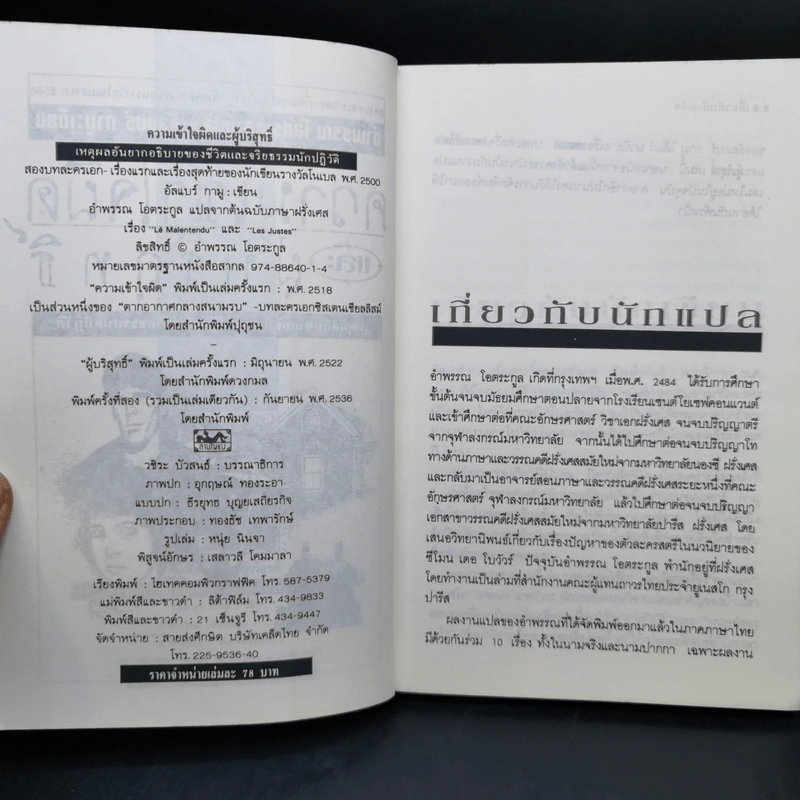 ความเข้าใจผิดและผู้บริสุทธิ์
เหตุผลอันยากอธิบายของชีวิตและจริยธรรมนักปฏิวัติ
สองบทละครเอก-เรื่องแรกและเรื่องสุดท้ายของนักเขียนรางวัลโนเบล พ.ศ. 2500
อัลแบร์ กามู : เขียน
อำพรรณ โอตระกูล แปลจากต้นฉบับภาษาฝรั่งเศส
เรื่อง "Lé Malentendu" และ "Les Justes"
ลิขสิทธิ์ © อำพรรณ โอตระกูล
หมายเลขมาตรฐานหนังสือสากล 974-88640-1-4
"ความเข้าใจผิด" พิมพ์เป็นเล่มครั้งแรก : พ.ศ. 2518
เป็นส่วนหนึ่งของ "ตากอากาศกลางสนามรบ" -บทละครเอกซิสเตนเชียลลิสม์
โดยสำนักพิมพ์ปุถุชน
–
"ผู้บริสุทธิ์" พิมพ์เป็นเล่มครั้งแรก : มิถุนายน พ.ศ. 2522
โดยสำนักพิมพ์ดวงกมล
พิมพ์ครั้งที่สอง (รวมเป็นเล่มเดียวกัน) : กันยายน พ.ศ. 2536
โดยสำนักพิมพ์
สามัญชน
วชิระ บัวสนธ์ : บรรณาธิการ
ภาพปก : อุกฤษณ์ ทองระอา
แบบปก : ธีรยุทธ บุญยเสถียรกิจ
ภาพประกอบ : ทองธัช เทพารักษ์
รูปเล่ม : หนุ่ย นินจา
พิสูจน์อักษร : เสลาวลี โคมมาลา
เรียงพิมพ์ : ไฮเทคคอมพิวกราฟฟิค โทร. 587-5379
แม่พิมพ์สีและขาวดำ : ลิต้าฟิล์ม โทร. 434-9833
พิมพ์สีและขาวดำ : 21 เซ็นจูรี โทร. 434-9447
จัดจำหน่าย : สายส่งศึกษิต บริษัทเคล็ดไทย จำกัด
โทร. 225-9536-40
ราคาจำหน่ายเล่มละ 78 บาท
เกี่ยวกับนักแปล
อำพรรณ โอตระกูล เกิดที่กรุงเทพฯ เมื่อพ.ศ. 2484 ได้รับการศึกษา
ขั้นต้นจนจบมัธยมศึกษาตอนปลายจากโรงเรียนเซนต์โยเซฟคอนแวนต์
และเข้าศึกษาต่อที่คณะอักษรศาสตร์ วิชาเอกฝรั่งเศส จนจบปริญญาตรี
จากจุฬาลงกรณ์มหาวิทยาลัย จากนั้นได้ไปศึกษาต่อจนจบปริญญาโท
ทางด้านภาษาและวรรณคดีฝรั่งเศสสมัยใหม่จากมหาวิทยาลัยนองซี ฝรั่งเศส
และกลับมาเป็นอาจารย์สอนภาษาและวรรณคดีฝรั่งเศสระยะหนึ่งที่คณะ
อักษรศาสตร์ จุฬาลงกรณ์มหาวิทยาลัย แล้วไปศึกษาต่อจนจบปริญญา
เอกสาขาวรรณคดีฝรั่งเศสสมัยใหม่จากมหาวิทยาลัยปารีส ฝรั่งเศส โดย
เสนอวิทยานิพนธ์เกี่ยวกับเรื่องปัญหาของตัวละครสตรีในนวนิยายของ
ซีโมน เดอ โบวัวร์ ปัจจุบันอำพรรณ โอตระกูล พำนักอยู่ที่ฝรั่งเศส
โดยทำงานเป็นล่ามที่สำนักงานคณะผู้แทนถาวรไทยประจำยูเนสโก กรุง
ปารีส
ผลงานแปลของอำพรรณที่ได้จัดพิมพ์ออกมาแล้วในภาคภาษาไทย
มีด้วยกันร่วม 10 เรื่อง ทั้งในนามจริงและนามปากกา เฉพาะผลงาน